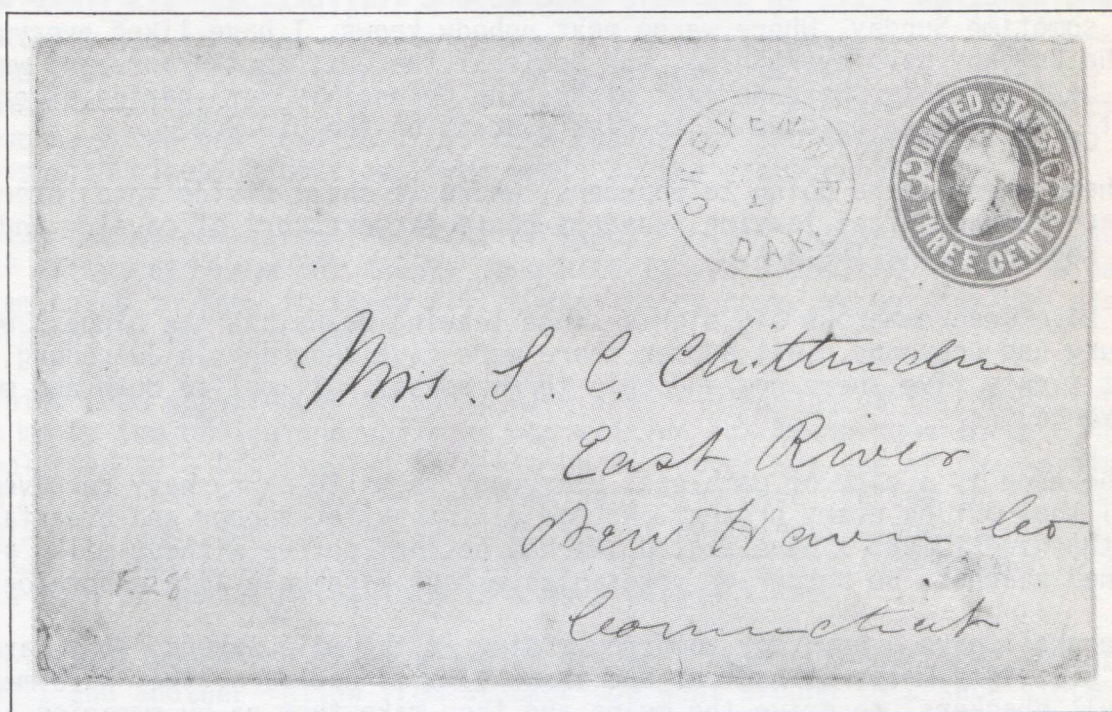 CHEYENNE
DAK.
UNITED STATES
3 3
THREE CENTS
Mrs. S. C. Chittenden
East River
New Haven Co
Connecticut
F.28